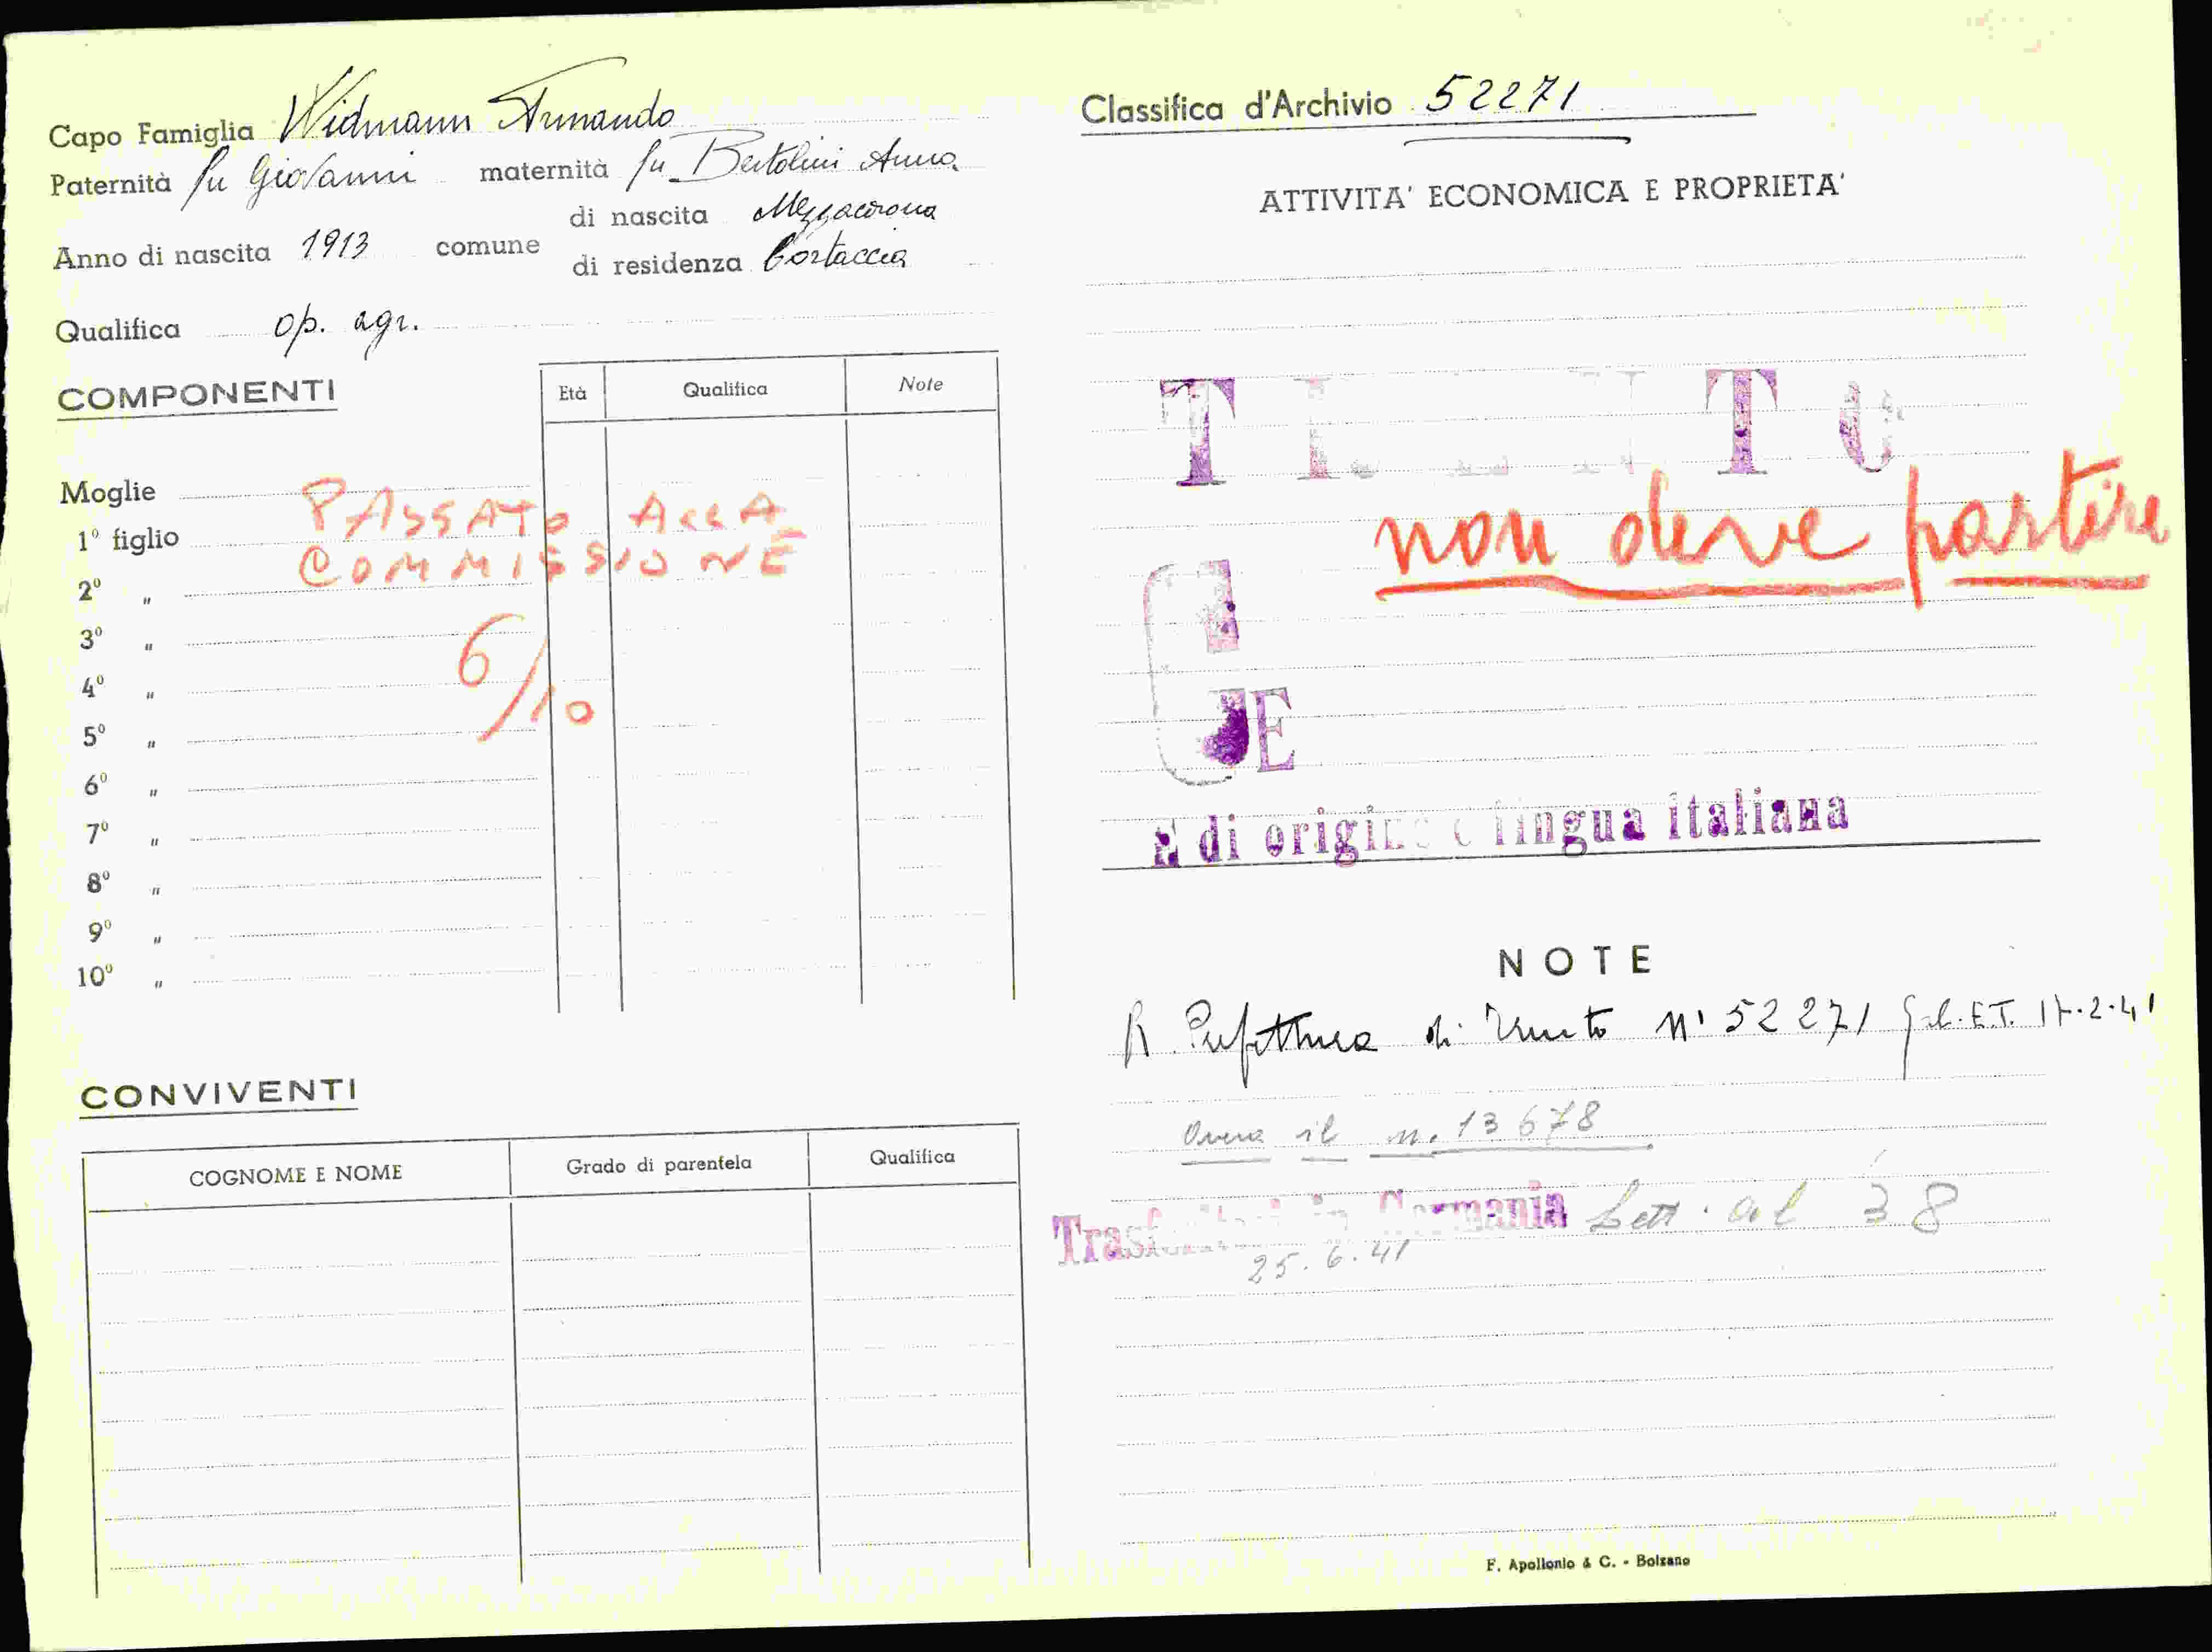 Capo Famiglia Widmann Armando
Paternità fu Giovanni maternità fu Bertolini Anna
Anno di nascita 1913 comune di nascita Mezzacorona
di residenza Cortaccia
Qualifica op. agr.
COMPONENTI Età Qualifica Note
Moglie
1° figlio
2° "
3° "
4° "
5° "
6° "
7° "
8° "
9° "
10° "
PASSATO ALLA
COMMISSIONE
6/10
CONVIVENTI
COGNOME E NOME Grado di parentela Qualifica
Classifica d'Archivio 52271
ATTIVITA' ECONOMICA E PROPRIETA'
non deve partire
E
di origine e lingua italiana
NOTE
R. Prefettura di Trento N° 52271 Gab. E.T. 17.2.41
il n. 13678
Trasferitosi in Germania Lett. al 38
25.6.41
F. Apollonio & C. - Bolzano